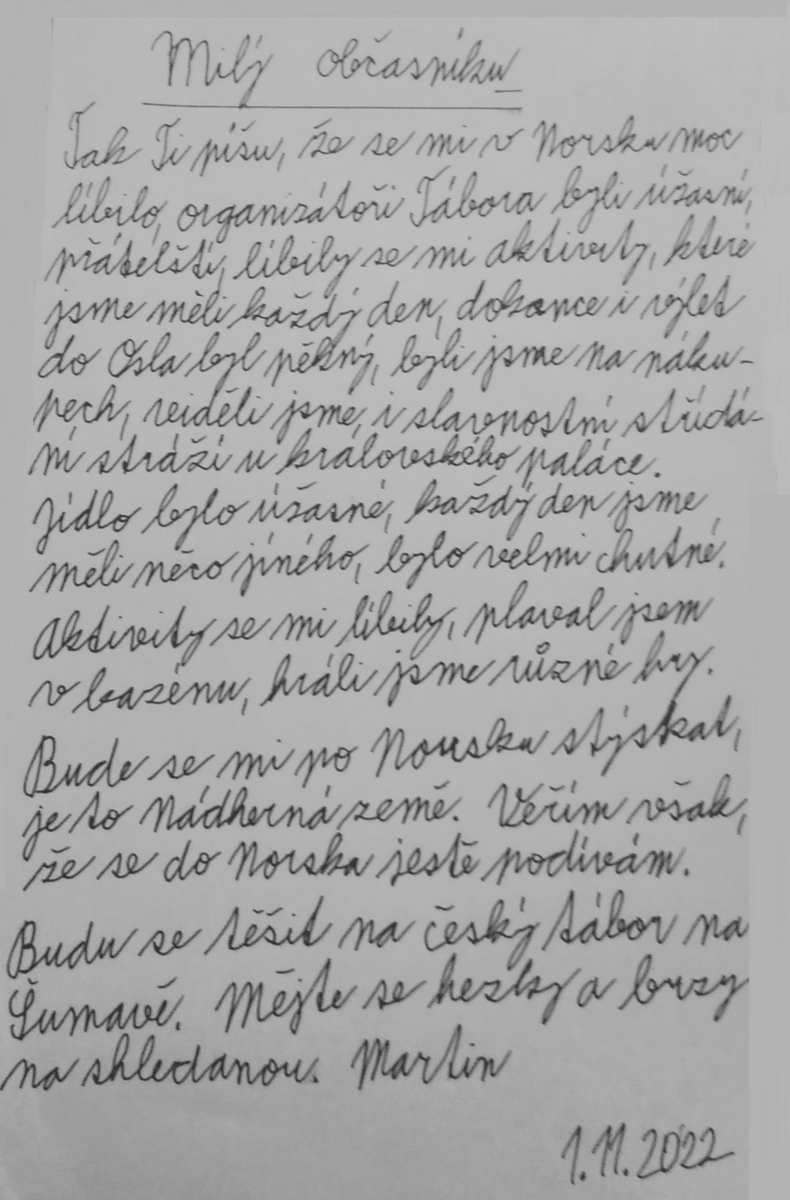 Milý občasníku
Tak Ti píšu, že se mi v Norsku moc
líbilo, organizátoři Tábora byli úžasní,
přátelští, líbily se mi aktivity, které
jsme měli každý den, dokonce i výlet
do Osla byl pěkný, byli jsme na náku-
pech, veiděli jsme, i slavnostní střídá-
ní stráží u královského paláce.
Jídlo bylo úžasné, každý den jsme
měli něco jiného, bylo velmi chutné.
Aktivity se mi líbily, plaval jsem
v bazénu, hráli jsme různé hry.
Bude se mi po Norsku stýskat,
je to Nádherná země. Věřím však,
že se do Norska jestě podívám.
Budu se těšit na český tábor na
Šumavě. Mějte se hezky a brzy
na shledanou. Martin
1.11.2022